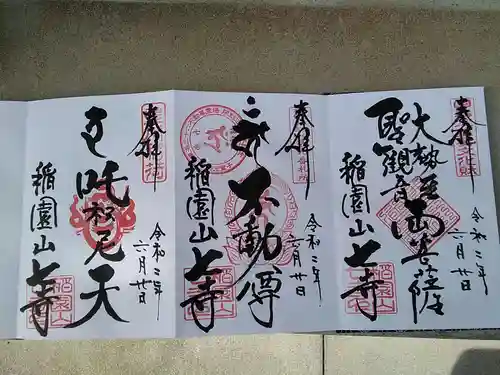 奉拝
大勢至両菩薩
聖観音
稲園山七寺
令和二年
六月廿日
奉拝
不動尊
稲園山七寺
令和二年
六月廿日
奉拝
吒枳尼天
稲園山七寺
令和二年
六月廿日